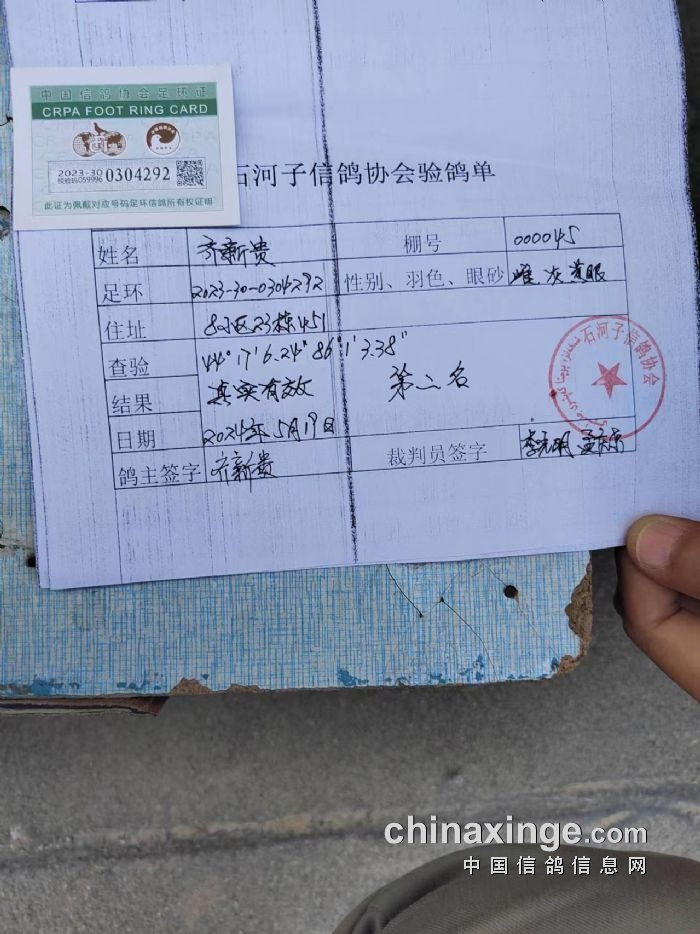 中国信鸽协会足环证
CRPA FOOT RING CARD
2023-30
校验码059996 0304292
此证为佩戴对应号码足环信鸽所有权证明
石河子信鸽协会验鸽单
姓名 齐新贵 棚号 000045
足环 2023-30-0304292 性别、羽色、眼砂 雌 灰 黄眼
住址 8小区23栋451
查验 44°17'6.24" 86°1'3.38"
结果 真实有效 第二名
日期 2024年5月19日
鸽主签字 齐新贵 裁判员签字 李光明
石河子信鸽协会
chinaxinge.com
中国信鸽信息网